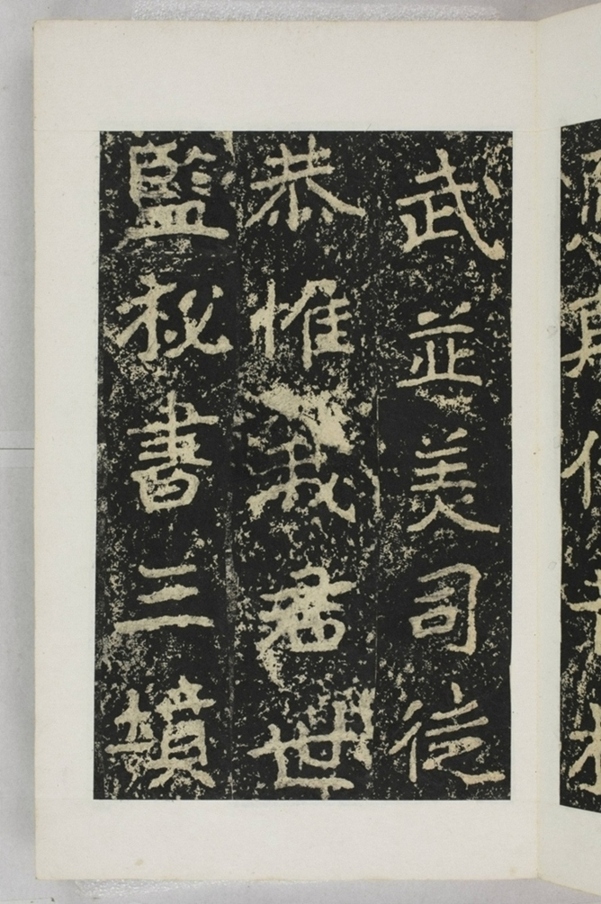 武並美司徒
恭惟我君世
監秘書三墳